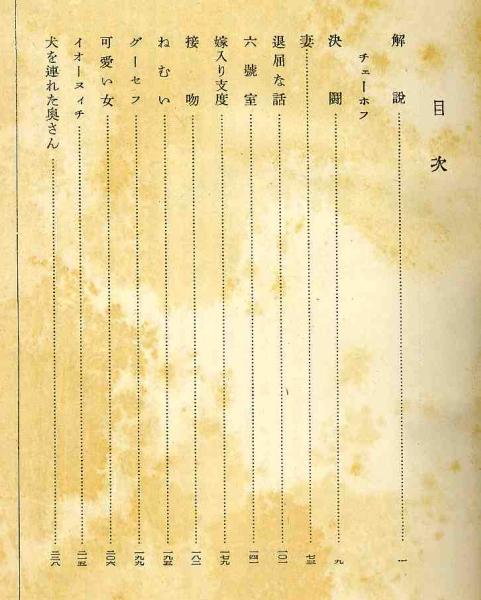 目次
解説……一
チェーホフ
決闘……九
妻……七三
退屈な話……一〇一
六號室……一四一
嫁入り支度……一七九
接吻……一八二
ねむい……一九五
グーセフ……一九九
可愛い女……二〇六
イオーヌィチ……二一五
犬を連れた奥さん……二二八